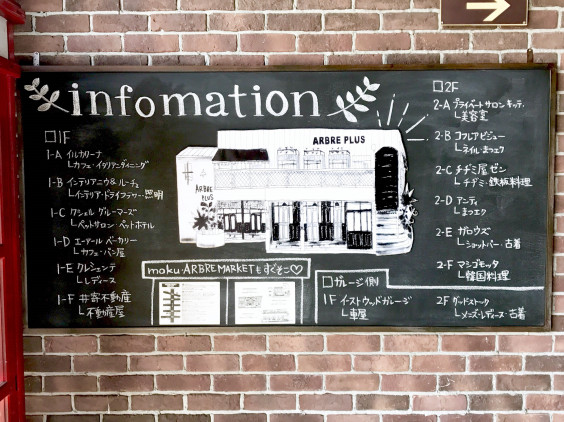 infomation
□1F
1-A イルカリーナ
└カフェ・イタリアンダイニング
1-B インテリアニウ&ルーチェ
└インテリア・ドライフラワー・照明
1-C クシェル グルーマーズ
└ペットサロン・ペットホテル
1-D エーデル ベーカリー
└カフェ・パン屋
1-E クレシェンテ
└レディース
1-F 井寄不動産
└不動産屋
ARBRE PLUS
ARBRE
PLUS
moku・ARBREMARKETもすぐそこ♡
□ガレージ側
1F イーストウッドガレージ
└車屋
□2F
2-A プライベートサロン キッテ.
└美容室
2-B コフレアビジュー
└ネイル・まつエク
2-C チヂミ屋 ゼン
└チヂミ・鉄板料理
2-D アンティ
└まつエク
2-E ガロウズ
└ショットバー・古着
2-F マシゴモッタ
└韓国料理
2F グッドストック
└メンズ・レディース・古着